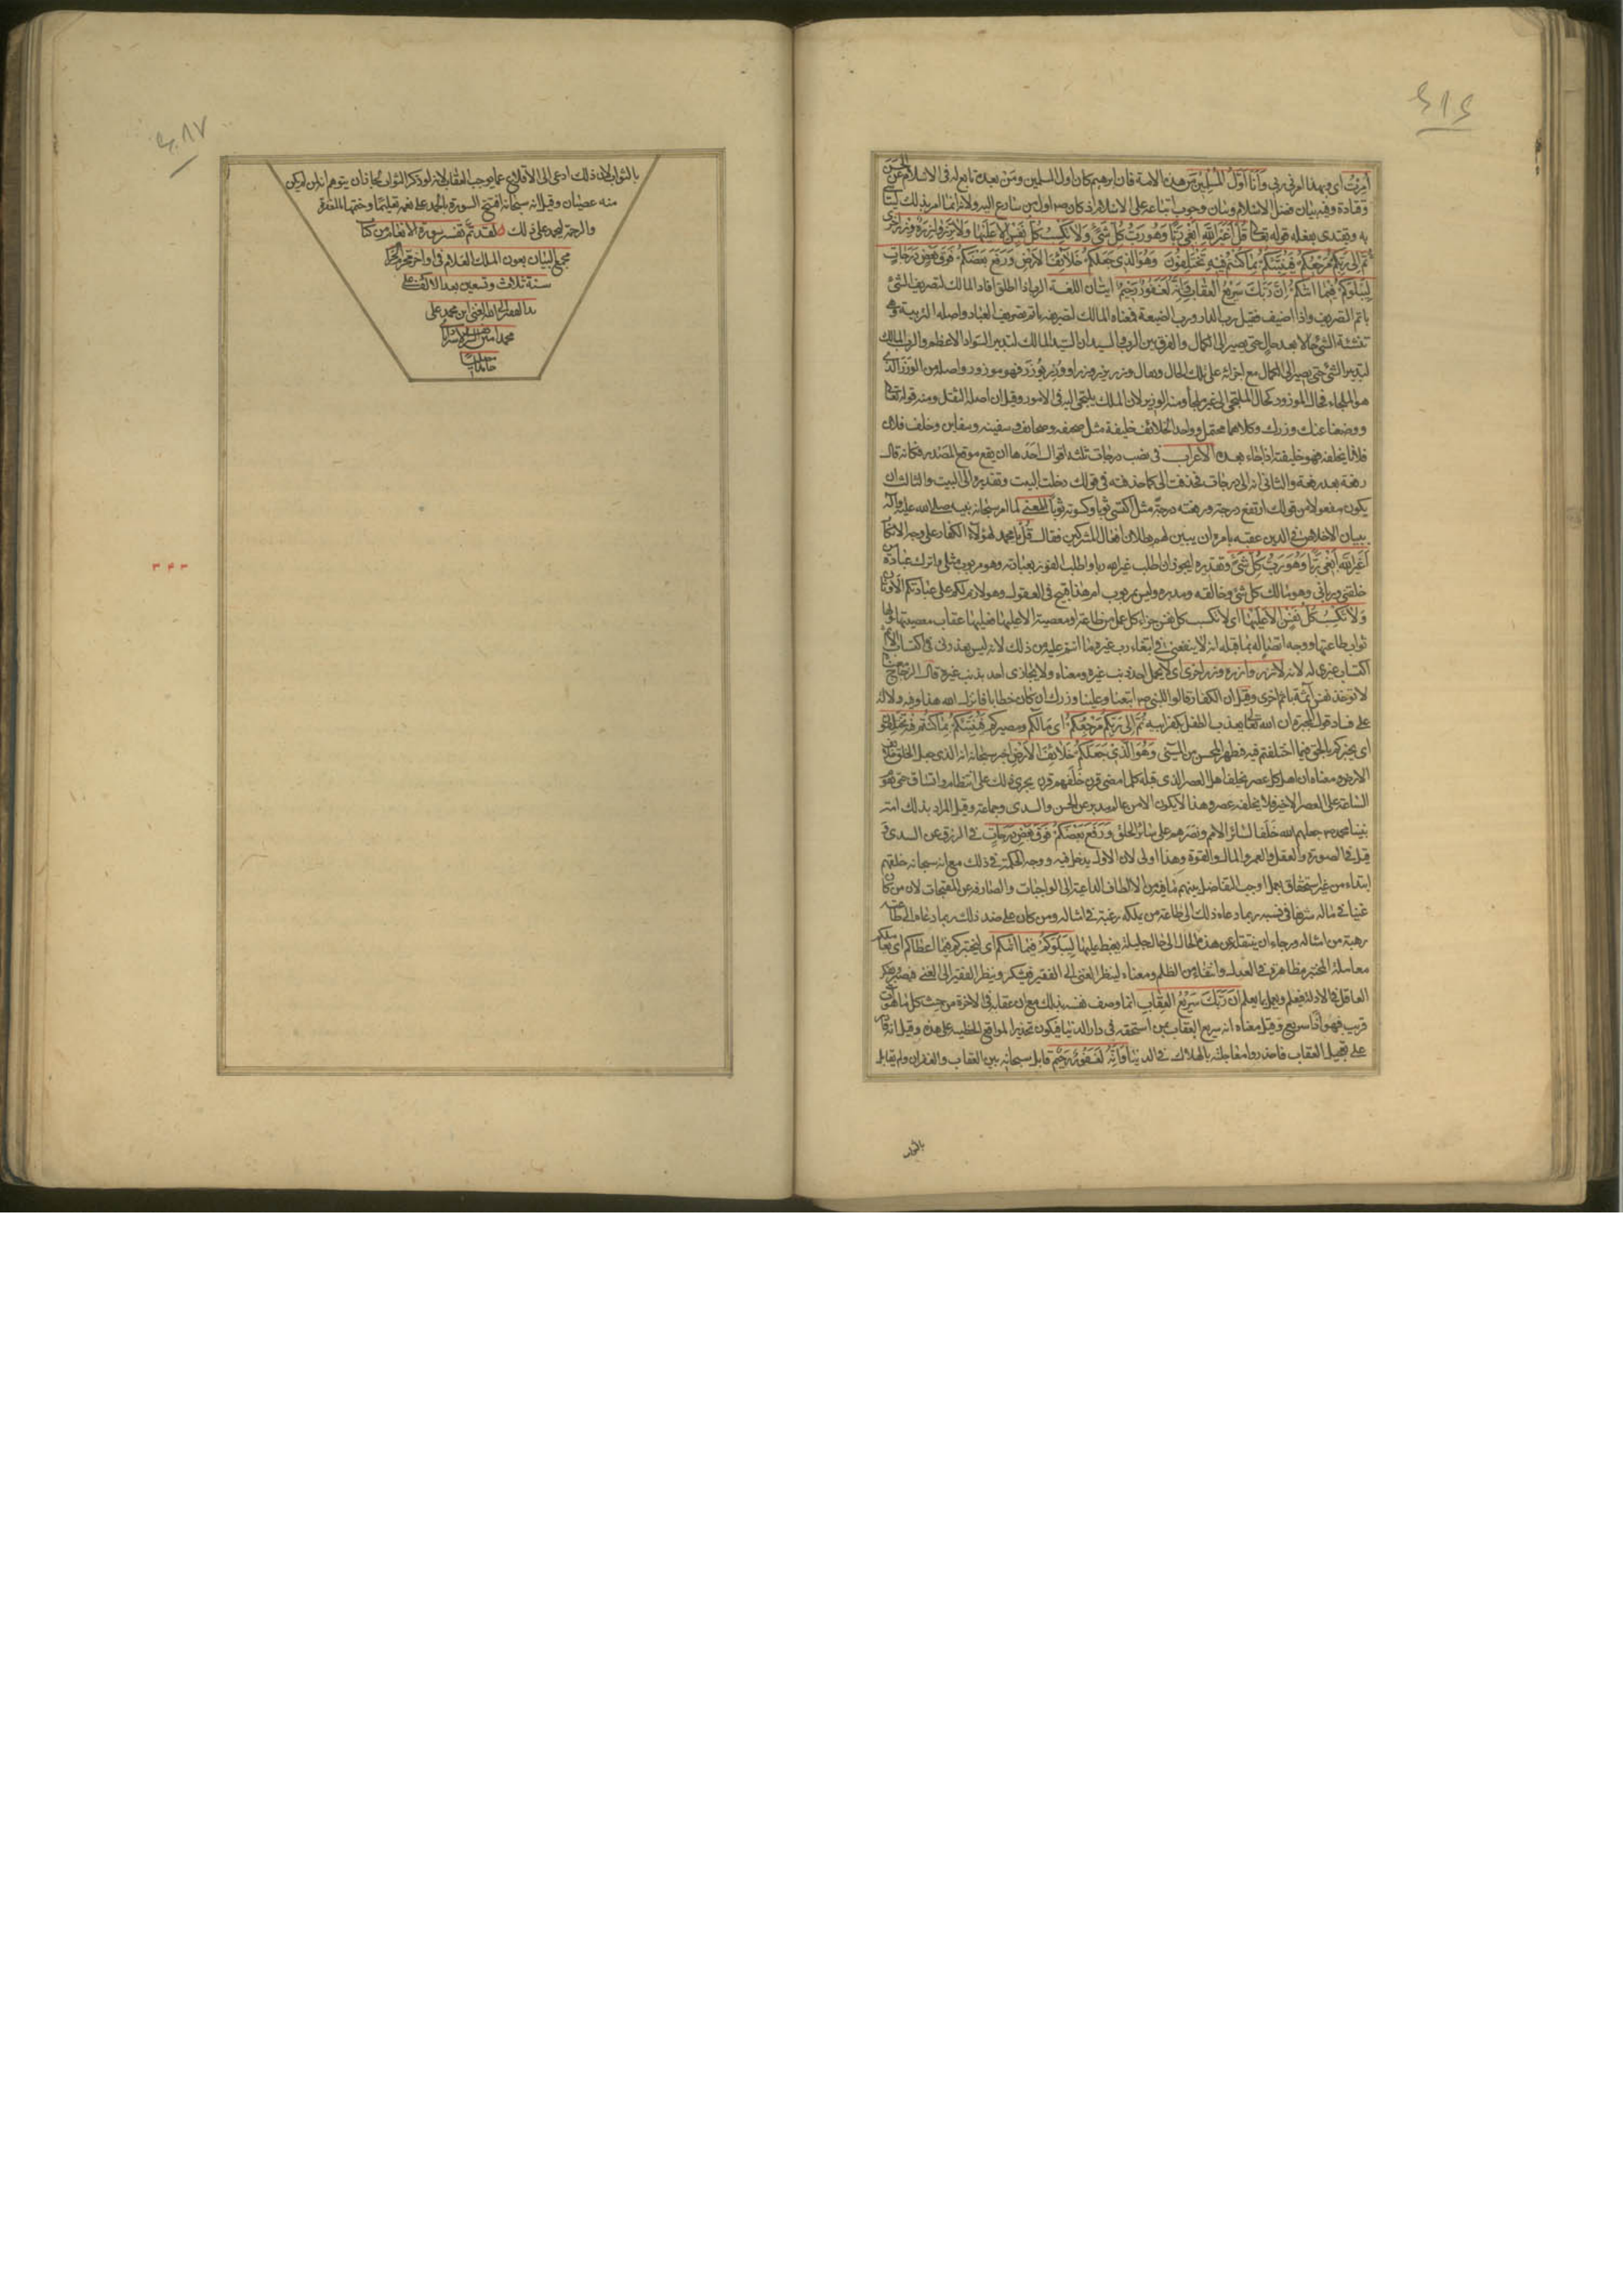 امرت اى وبهذا امرنى ربى وَاَنَا اَوَّلُ المُسْلِمِينَ من هذه الامة فان ابرهيم كان اول المسلمين ومن بعده تابع له فى الاسلام عن الحسن
وقتادة وفيه بيان فضل الاسلام وبيان وجوب اتباعه على الاسلام اذ كان ص اول من سارع اليه ولانه انما امر بذلك ليتأسى
به ويقتدى بفعله قوله تعالى قُلْ اَغَيْرَ اللّٰهِ اَبْغِى رَبًّا وَهُوَ رَبُّ كُلِّ شَىْءٍ وَلَا تَكْسِبُ كُلُّ نَفْسٍ اِلَّا عَلَيْهَا وَلَا تَزِرُ وَازِرَةٌ وِزْرَ اُخْرَى
ثُمَّ اِلَى رَبِّكُمْ مَرْجِعُكُمْ فَيُنَبِّئُكُمْ بِمَا كُنْتُمْ فِيهِ تَخْتَلِفُونَ وَهُوَ الَّذِى جَعَلَكُمْ خَلَائِفَ الْاَرْضِ وَرَفَعَ بَعْضَكُمْ فَوْقَ بَعْضٍ دَرَجَاتٍ
لِيَبْلُوَكُمْ فِيمَا اٰتٰيكُمْ اِنَّ رَبَّكَ سَرِيعُ الْعِقَابِ وَاِنَّهُ لَغَفُورٌ رَحِيمٌ ايتان اللغة الرب اذا اطلق افاد المالك لتصريف الشئ
باتم التصريف واذا اضيف فقيل رب الدار ورب الضيعة فمعناه المالك لتصريفه باتم تصريف العباد واصله التربية وهى
تنشئة الشئ حالا بعد حال حتى يصير الى الكمال والفرق بين الرب والسيد ان السيد المالك لتدبير السواد الاعظم والرب المالك
لتدبير الشئ حتى يصير الى الكمال مع اجرائه على تلك الحال ويقال وزر يزر وزرا ووزر يوزر فهو موزور واصله من الوزر الذى
هو الملجاء فحال الموزور كحال الملتجى الى غير ملجأ ومنه الوزير لان الملك يلتجى اليه فى الامور وقيل ان اصله الثقل ومنه قوله تعالى
ووضعنا عنك وزرك وكلاهما محتمل وواحد الخلائف خليفة مثل صحيفه وصحايف وسفينه وسفاين وخلف فلان
فلانا يخلفه فهو خليفته اذا جاء بعده الاعراب فى نصب درجات ثلثه اقوال احدها ان يقع موقع المصدر فكانه قال
رفعة بعد رفعة والثانى انه الى درجات فحذفت الى كما حذفت فى قولك دخلت البيت وتقديره الى البيت والثالث ان
يكون مفعولا من قولك ارتفع درجة ورفعته درجة مثل اكتسى ثوبا وكسوته ثوبا المعنى لما امر سبحانه نبيه صلى الله عليه وآله
ببيان الاخلاص فى الدين عقبه بامره ان يبين لهم بطلان افعال المشركين فقال قُلْ يا محمد لهؤلاء الكفار على وجه الانكار
اَغَيْرَ اللّٰهِ اَبْغِى رَبًّا وَهُوَ رَبُّ كُلِّ شَىْءٍ وتقديره ايجوز ان اطلب غير الله ربا واطلب الفوز بعبادته وهو مربوب مثلى واترك عبادة من
خلقنى وربانى وهو مالك كل شئ وخالقه ومدبره وليس بمربوب ام هذا قبيح فى العقول وهو لازم لكم على عبادتكم الاوثان
وَلَا تَكْسِبُ كُلُّ نَفْسٍ اِلَّا عَلَيْهَا اى لا تكسب كل نفس جزاء كل عمل من طاعة او معصية الا عليها فعليها عقاب معصيتها ولها
ثواب طاعتها ووجه اتصاله بما قبله انه لا ينفعنى فى ابتغاء رب غيره ما انتم عليه من ذلك لانه ليس بعذر لى فى اكتساب الاثم
اكتساب غيرى له لانه لا تزر وازرة وزر اخرى اى لا يحمل احد ذنب غيره ومعناه ولا يجازى احد بذنب غيره قال الزجاج معناه
لا تؤخذ نفس آثمة باثم اخرى وقيل ان الكفار قالوا للنبى ص اتبعنا وعلينا وزرك ان كان خطا با فانزل الله هذا وفيه دلالة
على فساد قول المجبرة ان الله تعالى يعذب الطفل بكفر ابيه ثُمَّ اِلَى رَبِّكُمْ مَرْجِعُكُمْ اى مآلكم ومصيركم فَيُنَبِّئُكُمْ بِمَا كُنْتُمْ فِيهِ تَخْتَلِفُونَ
اى يخبركم بالحق فيما اختلفتم فيه فظهر المحسن من المسئ وَهُوَ الَّذِى جَعَلَكُمْ خَلَائِفَ الْاَرْضِ اخبر سبحانه انه الذى جعل الخلق خلائف
الارض ومعناه ان اهل كل عصر يخلف اهل العصر الذى قبله كلما مضى قرن خلفهم قرن يجرى ذلك على انتظام واتساق حتى تقوم
الساعة على العصر الاخير فلا يخلفه عصر وهذا لا يكون الا من عالم مدبر عن الحسن والسدى وجماعة وقيل المراد بذلك امة
نبينا محمد ص جعلهم الله خلفا لسائر الامم ونصرهم على سائر الخلق وَرَفَعَ بَعْضَكُمْ فَوْقَ بَعْضٍ دَرَجَاتٍ فى الرزق عن السدى و
قيل فى الصورة والعقل والعمر والمال والقوة وهذا اولى لان الاول يدخل فيه ووجه الحكمة فى ذلك مع انه سبحانه خلقهم
ابتداء من غير استحقاق بعمل اوجب التفاضل بينهم ما فيه من الالطاف الداعية الى الواجبات والصارفه عن المقبحات لان من كان
غنيا فى ماله شريفا فى نسبه ربما دعاه ذلك الى طاعة من يملكه رغبة فى امثاله ومن كان على ضد ذلك ربما دعاه الى طاعته
رهبة من امثاله ورجاء ان ينتقل عن هذه الحال الى حال جليلة يغبط عليها لِيَبْلُوَكُمْ فِيمَا اٰتٰيكُمْ اى ليختبركم فيما اعطاكم اى يعاملكم
معاملة المختبر مظاهرة فى العدل وانتفاء من الظلم ومعناه لينظر الغنى الى الفقير فيشكر وينظر الفقير الى الغنى فيصبر ويفكر
العاقل فى الادلة فيعلم ويعمل بما يعلم اِنَّ رَبَّكَ سَرِيعُ الْعِقَابِ انما وصف نفسه بذلك مع ان عقابه فى الاخرة من حيث كل ما هو آت
قريب فهو اذا سريع وقيل معناه انه سريع العقاب بمن استحقه فى دار الدنيا فيكون تحذيرا لمواقع الخطيئه على هذه وقيل انه قادر
على تعجيل العقاب فاحذروا معاجلته بالهلاك فى الدنيا وَاِنَّهُ لَغَفُورٌ رَحِيمٌ قابل سبحانه بين العقاب والغفران ولم يقابل
بالثواب
بالثواب لان ذلك ادعى الى الاقلاع عما يوجب العقاب لانه لو ذكر الثواب لجاز ان يتوهم انه لمن لم يكن
منه عصيان وقيل انه سبحانه افتتح السورة بالحمد على نعمه تعليما وختمها بالمغفرة
والرحمة ليحمد على ذلك لقد تم تفسير سورة الانعام من كتاب
مجمع البيان بعون الملك العلام فى اواخر محرم الحرام
سنة ثلاث وتسعين بعد الالف على
يد الفقير الى الله الغنى ابن محمد على
محمد امين
حامدا
٣٤٣